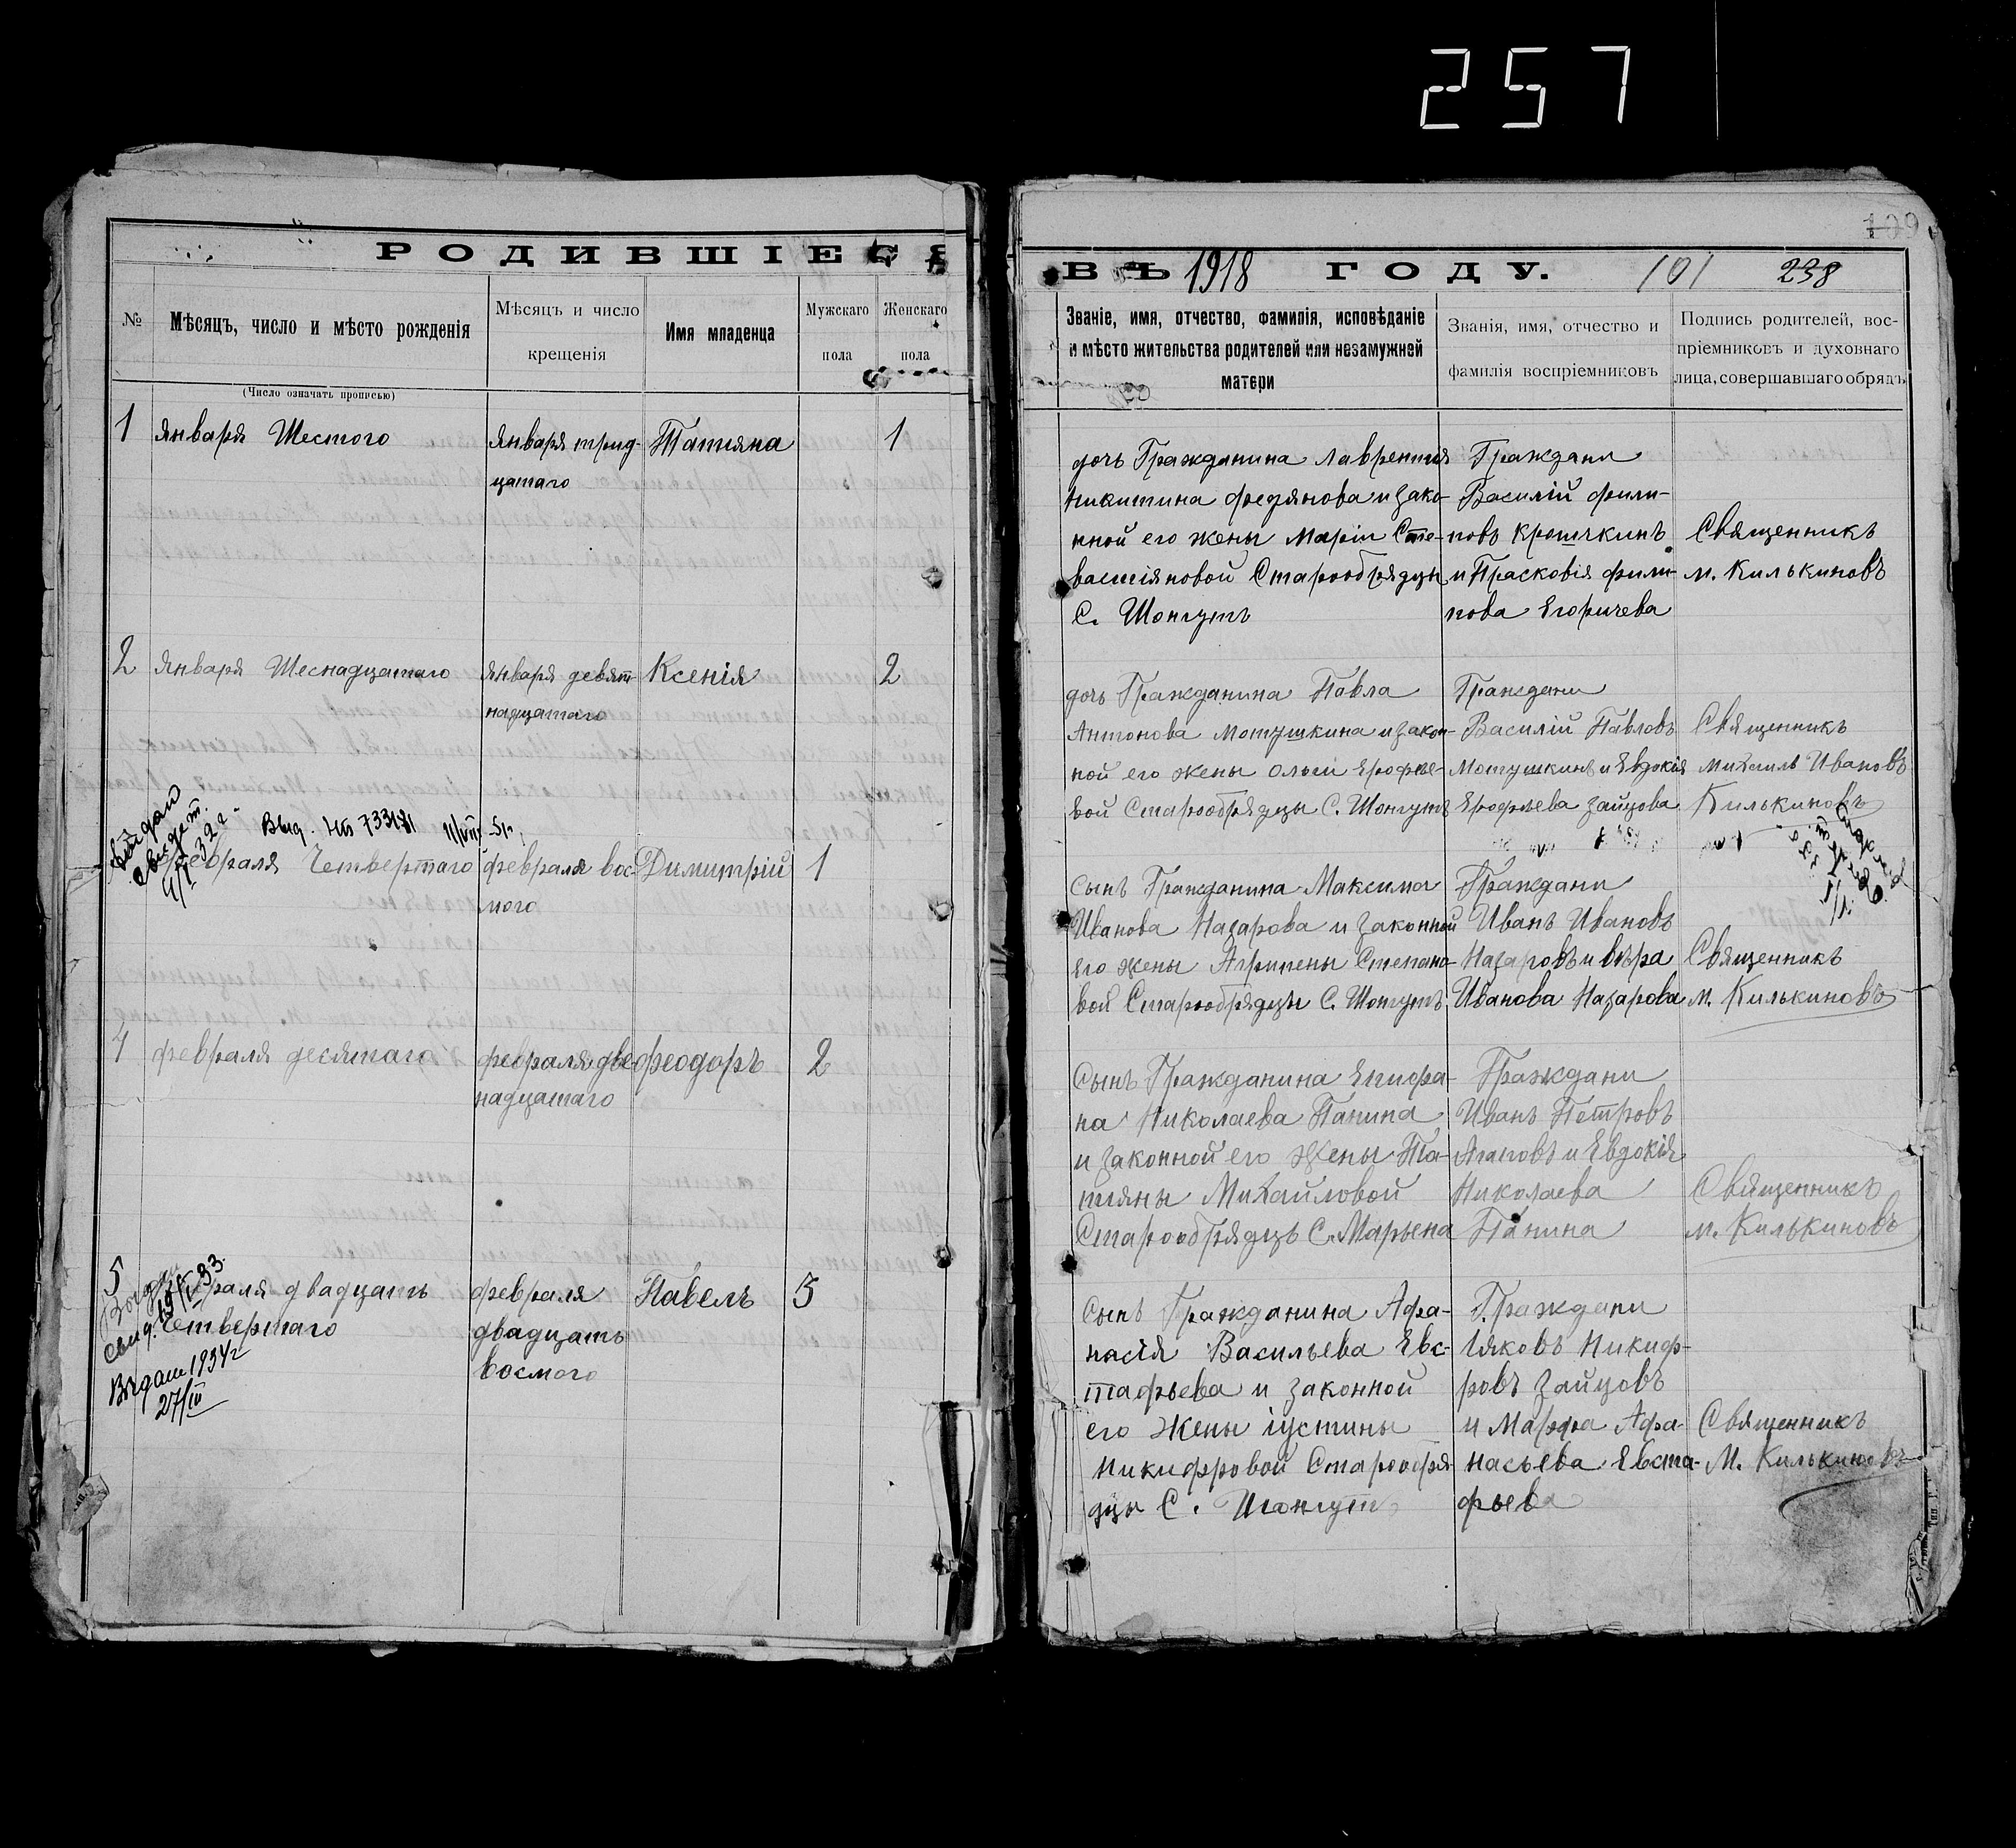 257
109
РОДИВШІЕСЯ
ВЪ 1918 ГОДУ. 101 238
№
Мѣсяцъ, число и мѣсто рожденія
(Число означать прописью)
Мѣсяцъ и число
крещенія
Имя младенца
Мужскаго
пола
Женскаго
пола
Званіе, имя, отчество, фамилія, исповѣданіе
и мѣсто жительства родителей или незамужней
матери
Званія, имя, отчество и
фамилія воспріемниковъ
Подпись родителей, вос-
пріемниковъ и духовнаго
лица, совершавшаго обрядъ
1
Января Шестого
Января трид-
цатаго
Татияна
1
дочь Гражданина Лаврентия
Никитина Федянова и зако-
нной его жены Маріи Сте-
вастіяновой Старообрядцы
С. Шонгутъ
Граждани
Василій Фили-
повъ Крошкинъ
и Прасковія Фили-
пова Егоричева
Священникъ
М. Килькиновъ
2
Января Шеснадцатаго
Января девят-
надцатаго
Ксенія
2
дочь Гражданина Павла
Антонова Мотушкина и закон-
ной его жены Ольги Ерофее-
вой Старообрядцы С. Шонгутъ
Граждани
Василій Павловъ
Мотушкинъ и Евдокія
Ерофѣева Зайцова
Священникъ
Михаилъ Ивановъ
Килькиновъ
выдан
свидет.
32 г.
Выд.
февраля Четвертаго
февраля вос-
мого
Димитрій
1
сынъ Гражданина Максима
Иванова Назарова и законной
его жены Агрипены Степано-
вой Старообрядцы С. Шонгутъ
Граждани
Иванъ Ивановъ
Назаровъ и вѣра
Иванова Назарова
Священникъ
М. Килькиновъ
4
февраля десятаго
февраля две-
надцатаго
Феодоръ
2
Сынъ Гражданина Епифа-
на Николаева Панина
и законной его жены Та-
тияны Михайловой
Старообрядцъ С. Марьена
Граждани
Иванъ Петровъ
Агаповъ и Евдокія
Николаева
Панина
Священникъ
М. Килькиновъ
5
свид.
февраля двадцать
Четвертаго
Выдан 1934 г
27/IV
февраля
двадцать
восмого
Павелъ
5
Сынъ Гражданина Афа-
насія Васильева Евс-
тафьева и законной
его жены іустины
Никифровой Старообря-
дцы С. Шонгутъ
Граждани
Іяковъ Никиф-
ровъ Зайцовъ
и Марфа Афа-
насьева Евста-
фьева
Священникъ
М. Килькиновъ